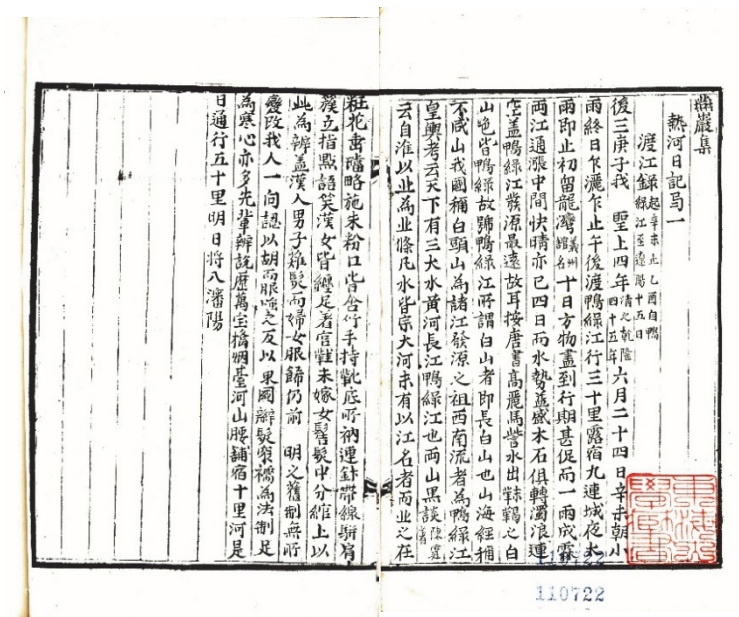 燕巖集
熱河日記弓一
渡江錄起辛未止乙酉自鴨綠江至遼陽十五日
後三庚子我　聖上四年清之乾隆四十五年六月二十四日辛未朝小
雨終日乍灑乍止午後渡鴨綠江行三十里露宿九連城夜大
雨即止初留龍灣義州館名十日方物盡到行期甚促而一雨成霖
兩江通漲中間快晴亦已四日而水勢益盛木石俱轉濁浪連
空盖鴨綠江發源最遠故耳按唐書高麗馬訾水出靺鞨之白
山色若鴨綠故號鴨綠江所謂白山者即長白山也山海經稱
不咸山我國稱白頭山為諸江發源之祖西南流者為鴨綠江
皇輿考云天下有三大水黃河長江鴨綠江也兩山墨談陳霆著
云自淮以北為北條凡水皆宗大河未有以江名者而北之在
粧花垂璫略施朱粉口皆含竹手持靴底所衲連針帶線騈肩
簇立指點語笑漢女皆纏足着宮鞋未嫁女髻髮中分綰上以
此為辨盖漢人男子雖髡而婦女服飾仍前　明之舊制無所
變改我人一向認以胡而服嗤之反以東國辮髮窄襦為法制足
為寒心亦多先輩辨說歷萬宝橋烟臺河山腰舖宿十里河是
日通行五十里明日將入瀋陽
110722